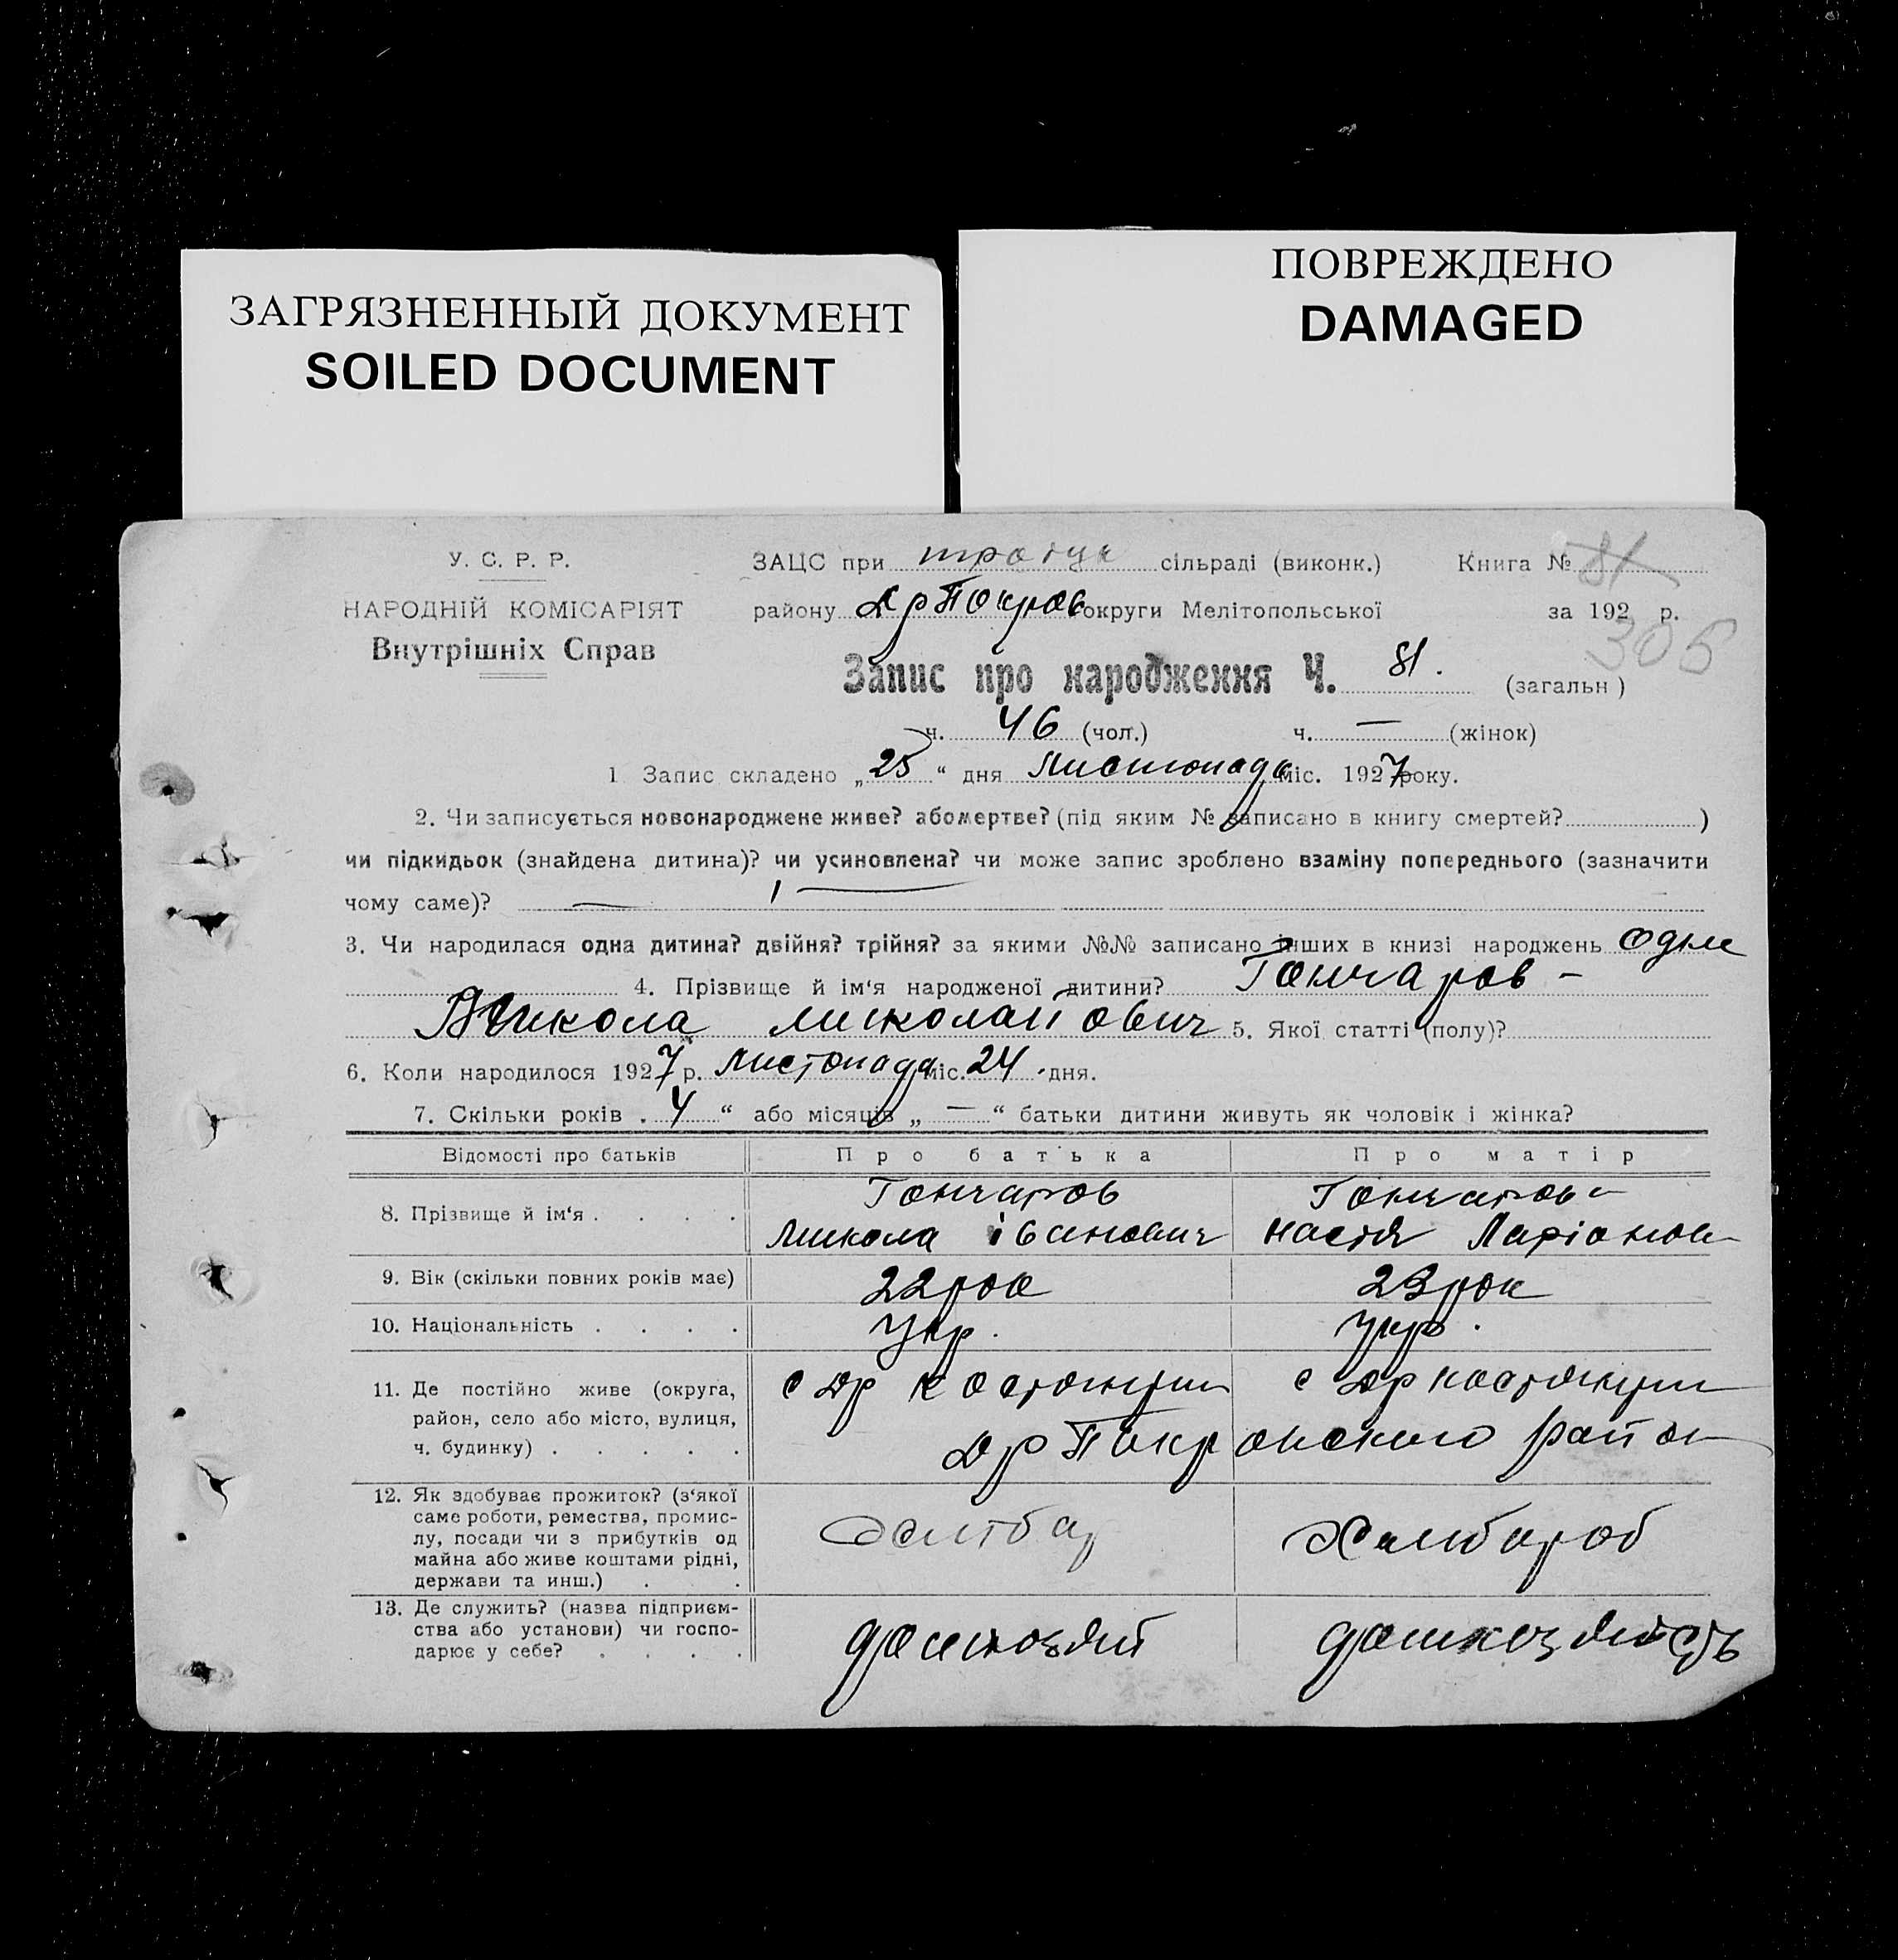 ЗАГРЯЗНЕННЫЙ ДОКУМЕНТ
SOILED DOCUMENT
ПОВРЕЖДЕНО
DAMAGED
У. С. Р. Р.
НАРОДНІЙ КОМІСАРІЯТ
Внутрішніх Справ
ЗАЦС при сільраді (виконк.) Книга № 81
району Др Покров округи Мелітопольської за 192 р.
306
Запис про народження Ч. 81. (загальн)
ч. 46 (чол.) ч. — (жінок)
1 Запис складено „25“ дня Листопада міс. 1927 року.
2. Чи записується новонароджене живе? або мертве? (під яким № записано в книгу смертей? )
чи підкидьок (знайдена дитина)? чи усиновлена? чи може запис зроблено взаміну попереднього (зазначити
чому саме)? —
3. Чи народилася одна дитина? двійня? трійня? за якими №№ записано інших в книзі народжень одна
4. Прізвище й ім‘я народженої дитини? Гончаров -
Микола Миколайович 5. Якої статті (полу)?
6. Коли народилося 1927 р. Листопада міс. 24 дня.
7. Скільки років „ 4 “ або місяців „ — “ батьки дитини живуть як чоловік і жінка?
Відомості про батьків Про батька Про матір
8. Прізвище й ім‘я . . . . Гончаров Гончарова
Микола іванович настя Ларіонов
9. Вік (скільки повних років має) 22 рок 23 рок
10. Національність . . . . Укр. Укр.
11. Де постійно живе (округа,
район, село або місто, вулиця,
ч. будинку) . . . . .
с Др Костянтин с Др костянтин
Др Покровского район
12. Як здобуває прожиток? (з‘якої
саме роботи, ремества, промис-
лу, посади чи з прибутків од
майна або живе коштами рідні,
держави та инш.) . .
Хлібороб
13. Де служить? (назва підприєм-
ства або установи) чи госпо-
дарює у себе? . . . .